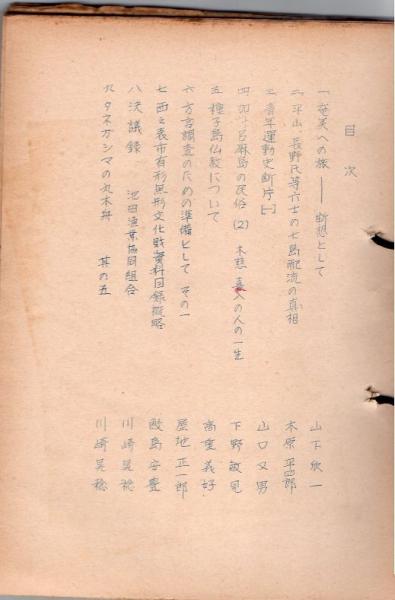 目次
一、奄美への旅 ── 断想として 山下欣一
二、平山、長野氏等六士の七島配流の真相 木原平四郎
三、青年運動史断片(一) 山口又男
四、加計呂麻島の民俗(2) 木慈 喜入の人の一生 下野敏見
五、種子島仏教について 高重義好
六、方言調査のための準備として その一 屋地正一郎
七、西之表市有形無形文化財資料目録概略 鮫島安豊
八、決議録 池田漁業協同組合 川崎晃稔
九、タネガシマの丸木舟 其の五 川崎晃稔